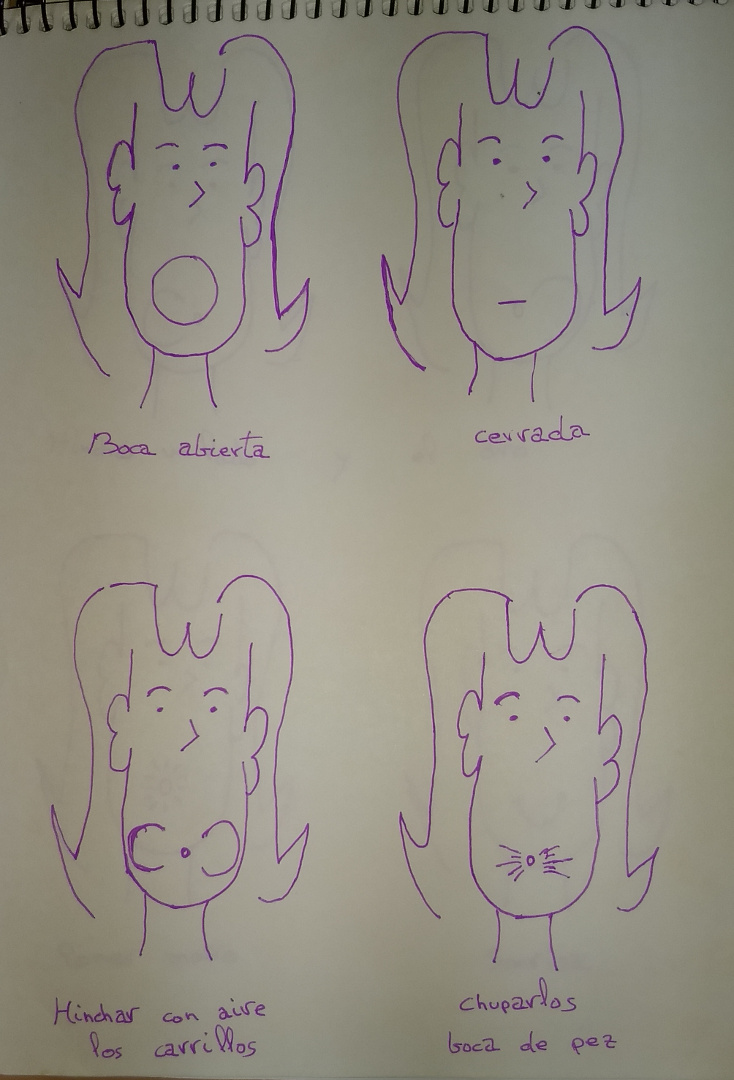 Boca abierta
cerrada
Hinchar con aire
los carrillos
chuparlos
boca de pez